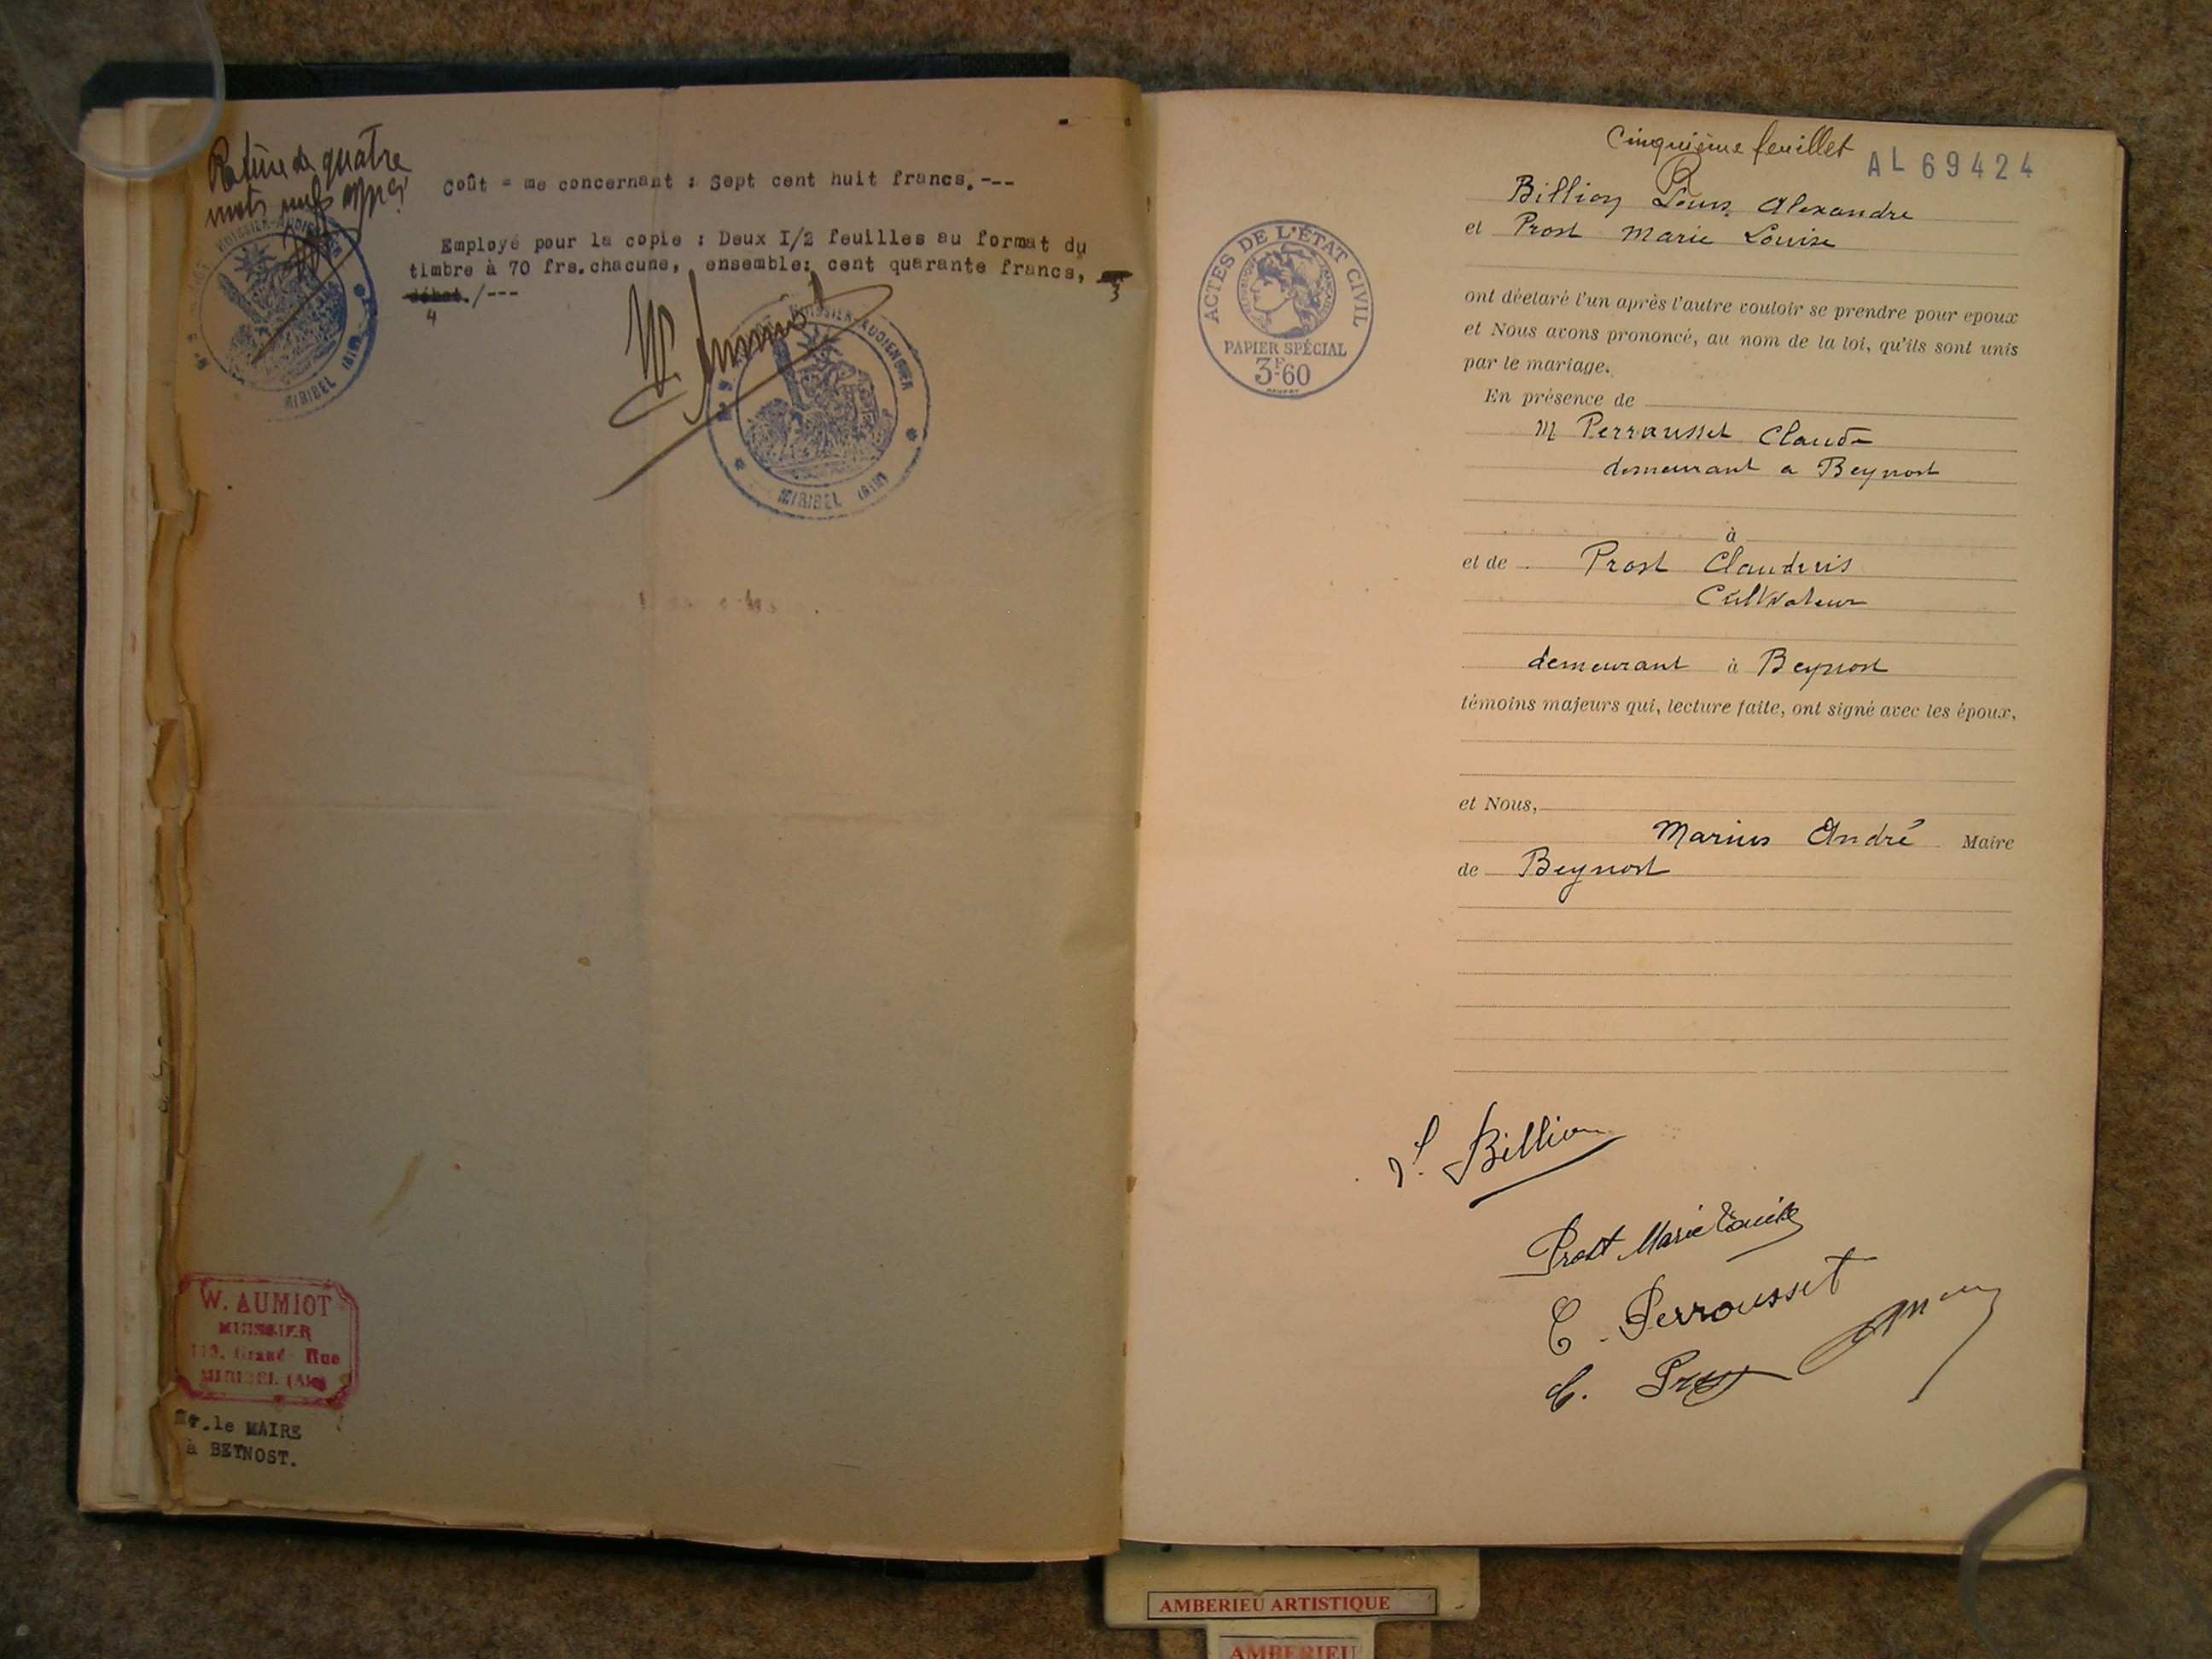 Rature de quatre
mots nuls
Coût = me concernant : Sept cent huit francs.---
Employé pour la copie : Deux I/2 feuilles au format du
timbre à 70 frs.chacune, ensemble: cent quarante francs,
3
débet./---
4
HUISSIER-AUDIENCIER
MIRIBEL (AIN)
HUISSIER-AUDIENCIER
MIRIBEL (AIN)
W. AUMIOT
HUISSIER
Grand Rue
MIRIBEL (Ain)
Mr.le MAIRE
à BEYNOST.
Cinquième feuillet
AL 69424
ACTES DE L'ÉTAT CIVIL
RÉPUBLIQUE FRANÇAISE
PAPIER SPÉCIAL
3F60
Billion Louis Alexandre
et Prost Marie Louise
ont déclaré l'un après l'autre vouloir se prendre pour epoux
et Nous avons prononcé, au nom de la loi, qu'ils sont unis
par le mariage.
En présence de
M Perrousset Claude
demeurant a Beynost
à
et de Prost Claudius
Cultivateur
demeurant à Beynost
témoins majeurs qui, lecture faite, ont signé avec les époux,
et Nous,
Marius André Maire
de Beynost
Billion
Prost Marie Louise
C. Perrousset
C. Prost
AMBERIEU ARTISTIQUE
AMBERIEU